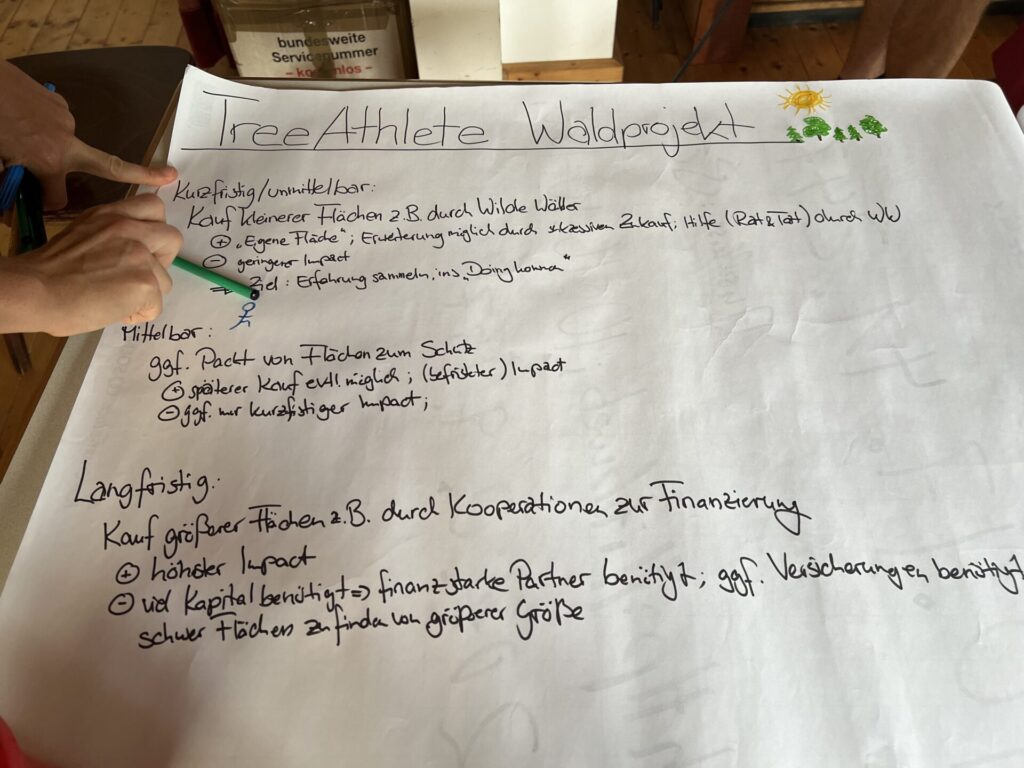 bundesweite
Servicenummer
– kostenlos –
TreeAthlete Waldprojekt
Kurzfristig/unmittelbar:
Kauf kleinerer Flächen z.B. durch Wilde Wälder
⊕ „Eigene Fläche“; Erweiterung möglich durch sukzessiven Zukauf; Hilfe (Rat & Tat) durch WW
⊖ geringerer Impact
⇒ Ziel: Erfahrung sammeln, ins „Doing kommen“
Mittelbar:
ggf. Pacht von Flächen zum Schutz
⊕ späterer Kauf evtl. möglich; (befristeter) Impact
⊖ ggf. nur kurzfristiger Impact;
Langfristig:
Kauf größerer Flächen z.B. durch Kooperationen zur Finanzierung
⊕ höhster Impact
⊖ viel Kapital benötigt => finanzstarke Partner benötigt; ggf. Versicherungen benötigt
schwer Flächen zu finden von größerer Größe